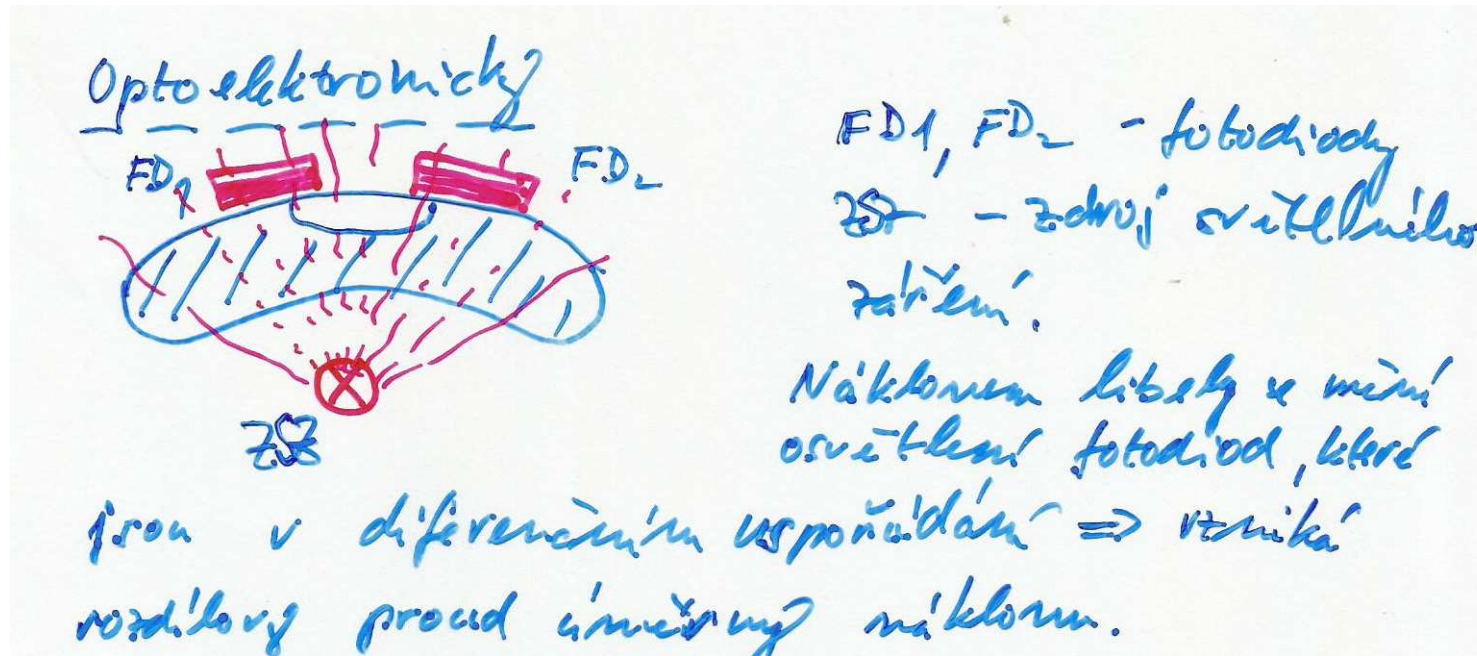 Optoelektronický
FD1
FD2
ZSZ
FD1, FD2 - fotodiody
ZSZ - zdroj světelného
záření.
Náklonem libely se mění
osvětlení fotodiod, které
jsou v diferenčním uspořádání => vzniká
rozdílový proud úměrný náklonu.